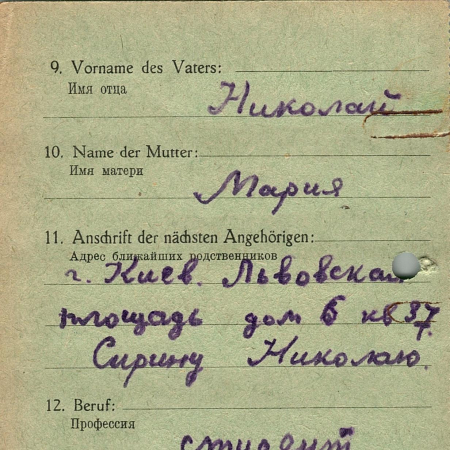 9. Vorname des Vaters:
Имя отца
Николай
10. Name der Mutter:
Имя матери
Мария
11. Anschrift der nächsten Angehörigen:
Адрес ближайших родственников
г. Киев. Львовская
площадь дом 6 кв 37.
Сирину Николаю.
12. Beruf:
Профессия
студент